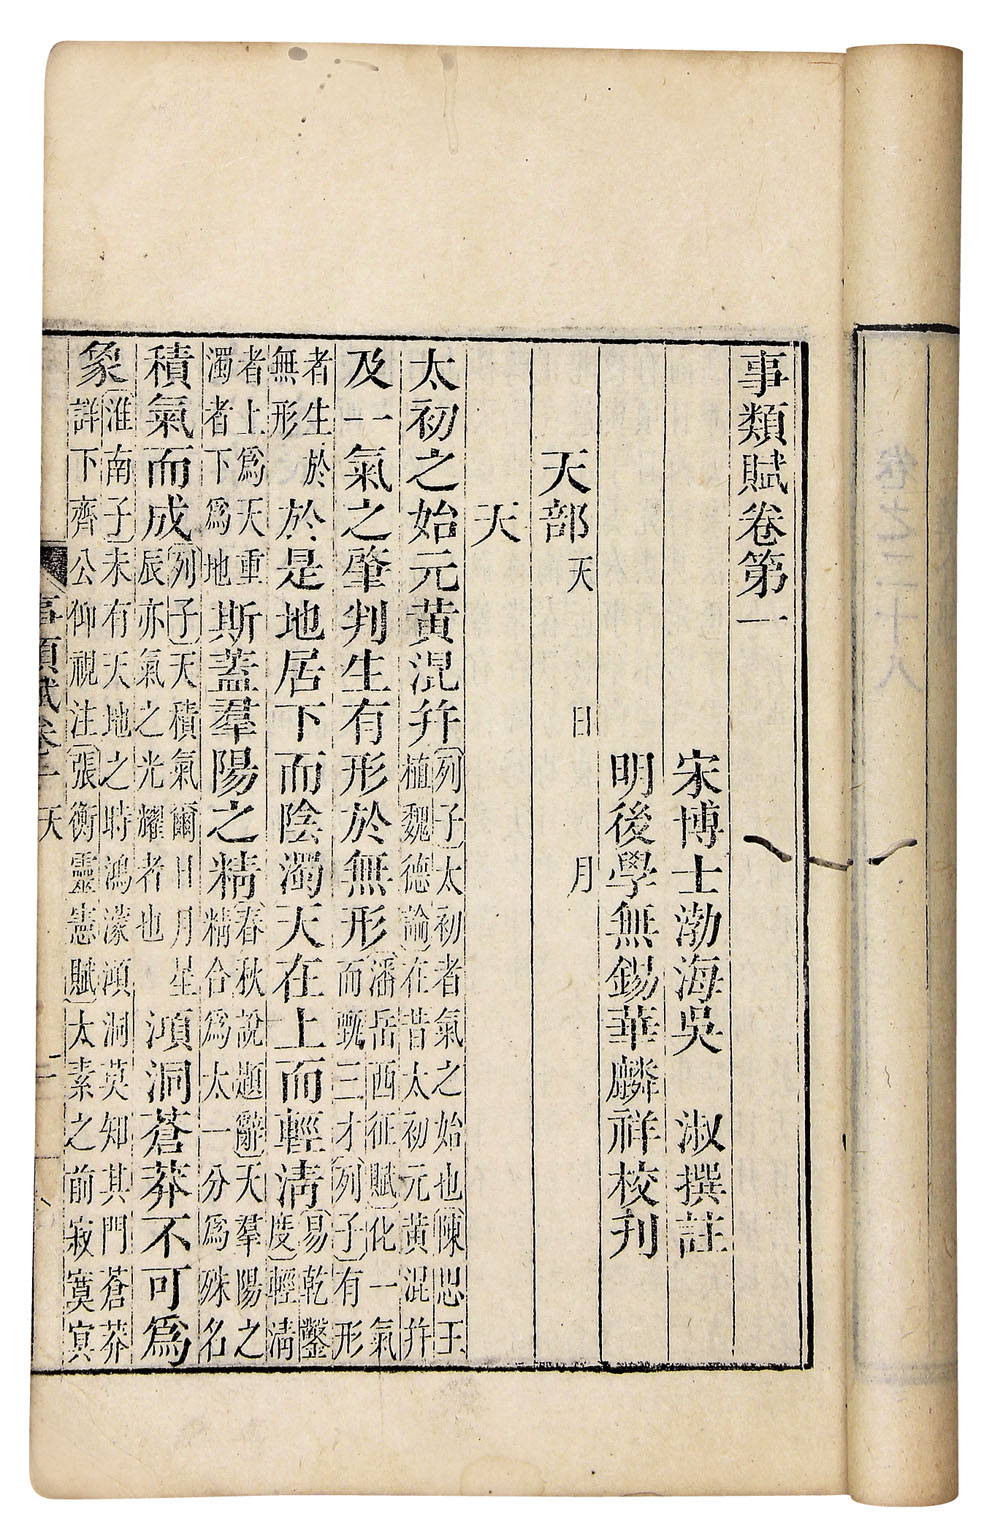 事類賦卷第一
宋博士渤海吳 淑撰註
明後學無錫華麟祥校刊
天部 天 日 月
天
太初之始元黄混并列子太初者氣之始也陳思王植魏德論在昔太初元黄混并
及一氣之肇判生有形於無形潘岳西征賦化一氣而甄三才列子有形
者生於無形於是地居下而陰濁天在上而輕清易乾鑿度輕清
者上爲天重濁者下爲地斯蓋羣陽之精春秋說題辭天羣陽之精合爲太一分爲殊名
積氣而成列子天積氣爾日月星辰亦氣之光耀者也澒洞蒼莽不可爲
象淮南子未有天地之時鴻濛澒洞莫知其門蒼莽詳下齊公仰視注張衡靈憲賦太素之前寂寞冥
事類賦卷之一 天